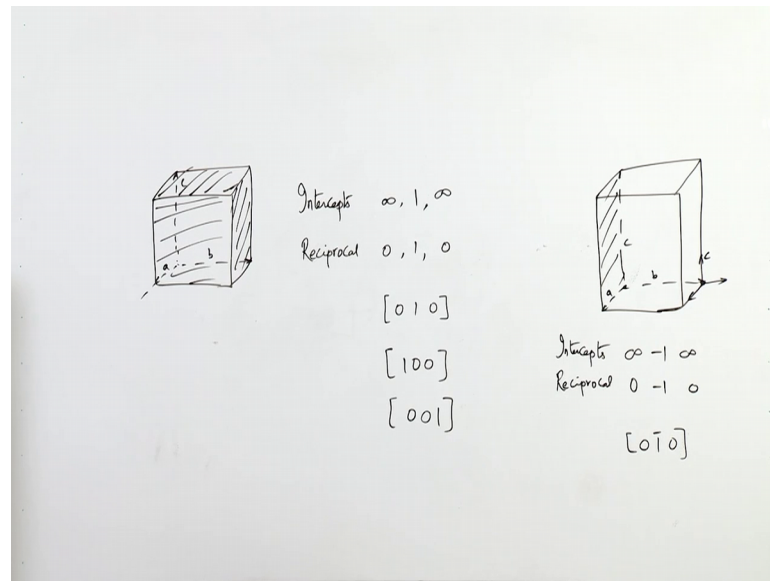 c
a
b
Intercepts ∞, 1, ∞
Reciprocal 0, 1, 0
[010]
[100]
[001]
c
a
b
c
Intercepts ∞ -1 ∞
Reciprocal 0 -1 0
[01̄0]